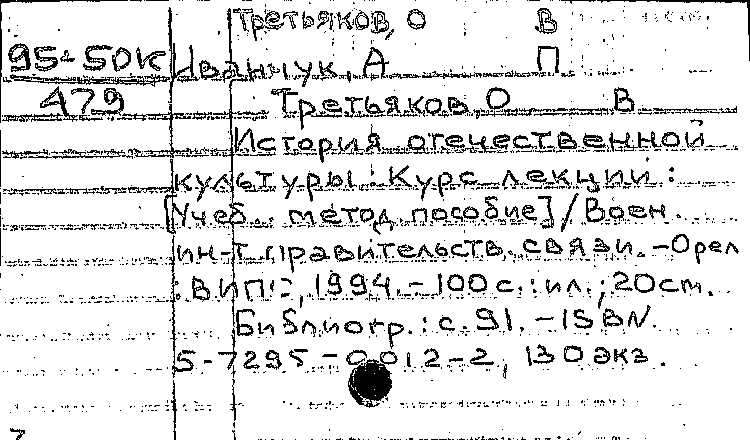 Третьяков, О В
95-50К Иванчук, А П
479 Третьяков, О В
История отечественной
культуры : Курс лекций :
[Учеб. метод. пособие] / Воен.
ин-т правительств. связи. - Орел
: ВИПС, 1994. - 100 с. : ил. ; 20 см.
Библиогр.: с. 91. - ISBN
5-7295-0012-2, 130 экз.